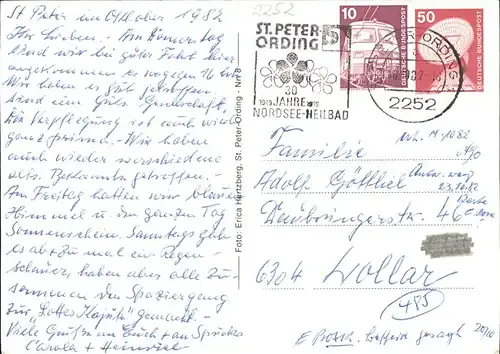 St Peter im Oktober 1982
Ihr Lieben. Am Donnerstag
sind wir bei guter Fahrt hier
angekommen es so gegen 16 Uhr
Wir haben es gut getroffen.
Sind eine gute Gemeinschaft.
Die Verpflegung ist auch wirklich
ganz prima. Wir haben
auch wieder verschiedene
alte Bekannte getroffen.
Am Freitag hatten wir blauen
Himmel u den ganzen Tag
Sonnenschein. Samstags gab
es ab + zu mal ein Regen-
schauer, haben aber alle Zu-
sammen den Spaziergang
zur
gemacht.
Viele Grüße an Euch + an
Carola + Heinrich
Foto: Erica Hertzberg, St. Peter-Ording - Nr.
2252
ST. PETER-
ORDING
30
1949 JAHRE 1979
NORDSEE-HEILBAD
10
DEUTSCHE BUNDESPOST
50
DEUTSCHE BUNDESPOST
2252
Familie
Adolf Göttlich
46
6304 Lollar
485